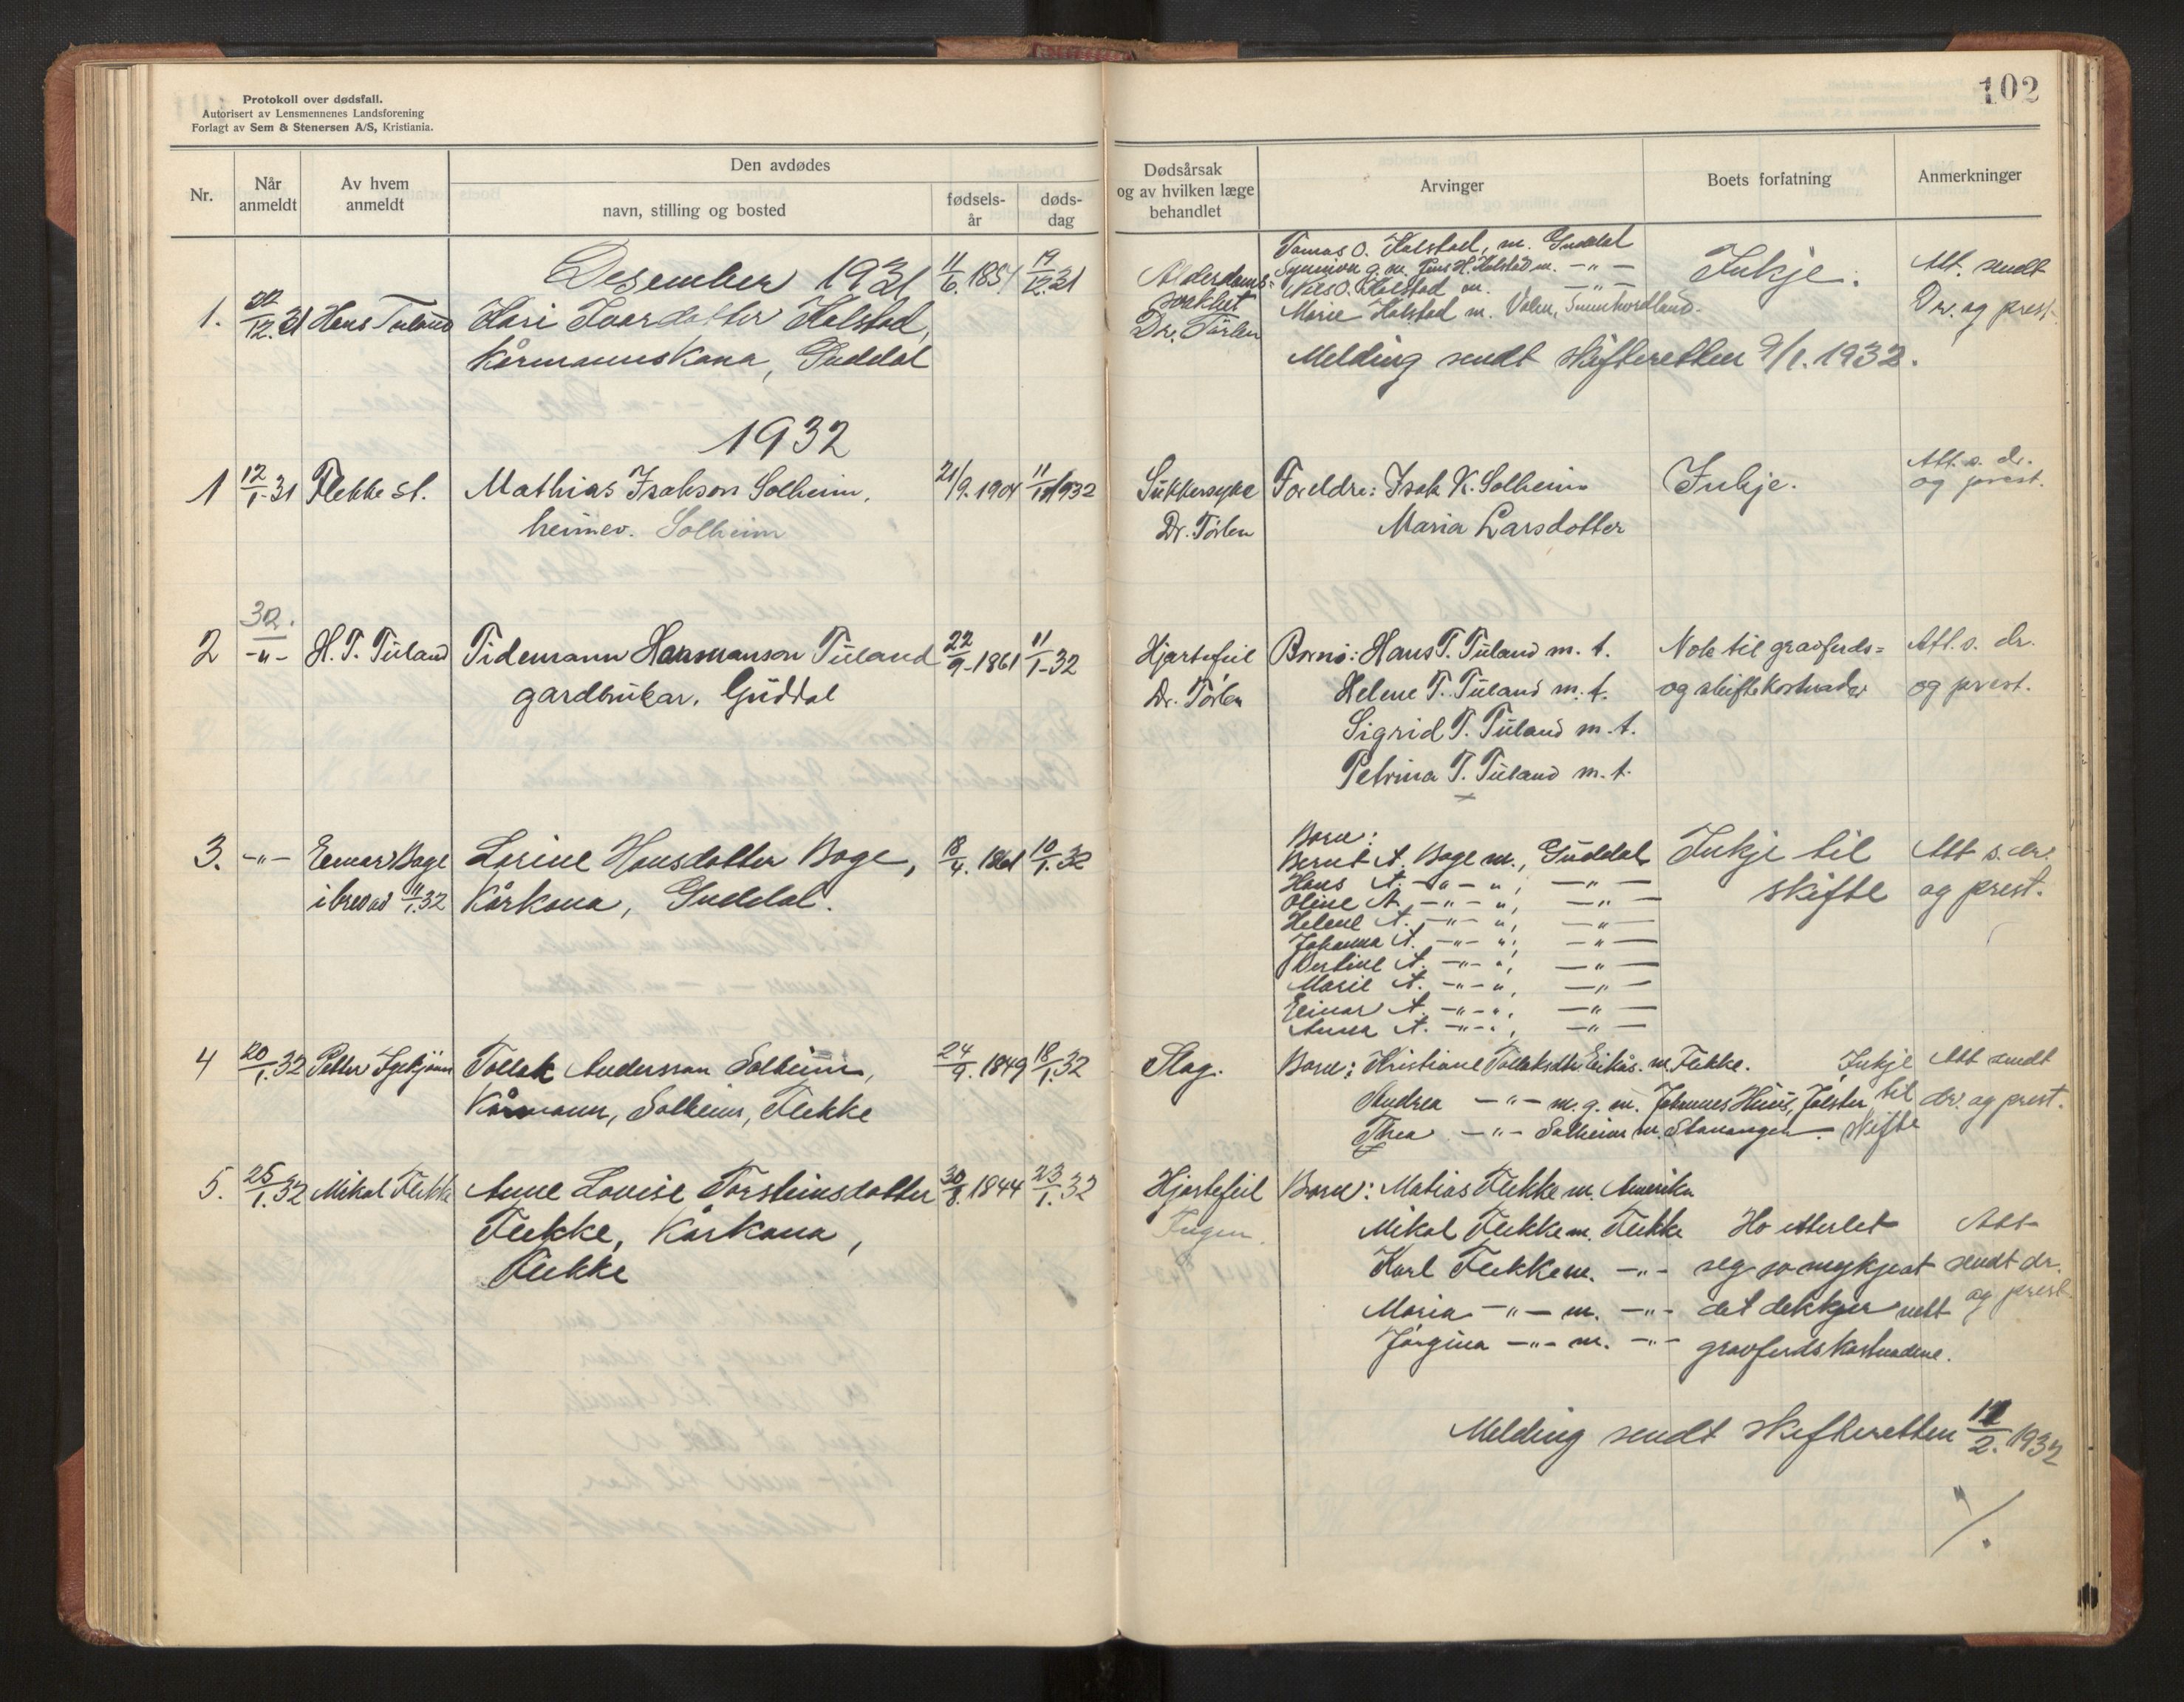 102
Protokoll over dødsfall.
Autorisert av Lensmennenes Landsforening
Forlagt av Sem & Stenersen A/S, Kristiania.
Nr.
Når anmeldt
Av hvem anmeldt
Den avdødes
navn, stilling og bosted
fødsels-år
døds-dag
Dødsårsak og av hvilken læge behandlet
Arvinger
Boets forfatning
Anmerkninger
Desember 1931
1. 22/12.31 Hans Tuland Kari Ivarsdotter Kolstad, 11/6.1851 19/12.31
Kårmannskona, Guddal
Alderdoms-
svekkut
Dr. Tørlen
Tomas O. Kolstad, m. Guddal
Synneva g. m. Jens H. Kolstad m. -"-
Nils O. Kolstad m. -"-
Marie Kolstad m. Valen, Sunnhordland.
Inkje.
Att. sendt
Dr. og prest.
Melding sendt skifteretten 9/1.1932.
1932
1 12/1-31 Flekke st. Mathias Isakson Solheim, 21/9.1904 11/1 1932
heimev. Solheim
Sukkersyke
Dr. Tørlen
Foreldre: Isak K. Solheim
Maria Larsdotter
Inkje.
Att. s. dr.
og prest.
32.
2 -"- H. T. Tuland Tidemann Hansson Tuland 22/9-1861 11/1-32
gardbrukar. Guddal
Hjartefeil
Dr. Tørlen
Borni: Hans T. Tuland m. t.
Helene T. Tuland m. t.
Sigrid T. Tuland m. t.
Petrina T. Tuland m. t.
Nok til gravferds=
og skiftekostnader
Att. s. dr.
og prest.
3. -"- Einar Boge Lorine Hansdotter Boge, 18/4.1861 10/1.32
i brev av 11/1.32 Kårkona, Guddal.
Born:
Bernt A. Boge m., Guddal
Hans A. -"- ", -"-
Oline A. -"- ", -"-
Helene A. -"- ", -"-
Johanna A. -"- ", -"-
Kirstine A. -"- ", -"-
Marie A. -"- ", -"-
Einar A. -"- ", -"-
Anna A. -"- ", -"-
Inkje til
skifte
Att s. dr.
og prest.
4 20/1.32 Petter Tollak Anderson Solheim, 24/9.1849 18/1.32
Kårmann, Solheim, Flekke
Slag.
Born: Kristiane Tollaksdtr Eikås. m. Flekke.
Andrea -"- m. g. m. Johannes Huus, Jølster
Thea -"- Solheim m. Stavanger.
Inkje
til
skifte
Att sendt
dr. og prest.
5. 25/1.32 Mikal Flekke Anne Lovise Torsteinsdotter 30/8.1844 23/1.32
Flekke, Kårkona,
Flekke
Hjartefeil
Ingen.
Born: Matias Flekke m. Amerika
Mikal Flekke m. Flekke
Karl Flekke m. -"-
Maria -"- m. -"-
Jørgina -"- m. -"-
Ho etterlet
seg so mykje at
det dekkjer nett
gravferdskostnadene.
Att
sendt dr.
og prest.
Melding sendt Skifteretten 12/2.1932